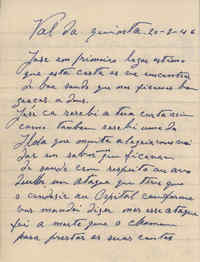 Val da quinta 20-2-46
José em primeiro lugar estimo
que esta carta os vá encontrar
de boa saude que nos ficamos bem
graças a Deus.
José ca recebi a tua carta assim
como tambem recebi uma da
Ilda que muito alegria
dar em saber que ficavam
de saude com respeito ao avo
um ataque que teve que
o Ospital conforme
vos mandei dizer mas esse ataque
foi a morte que o chamou
para prestar as suas contas